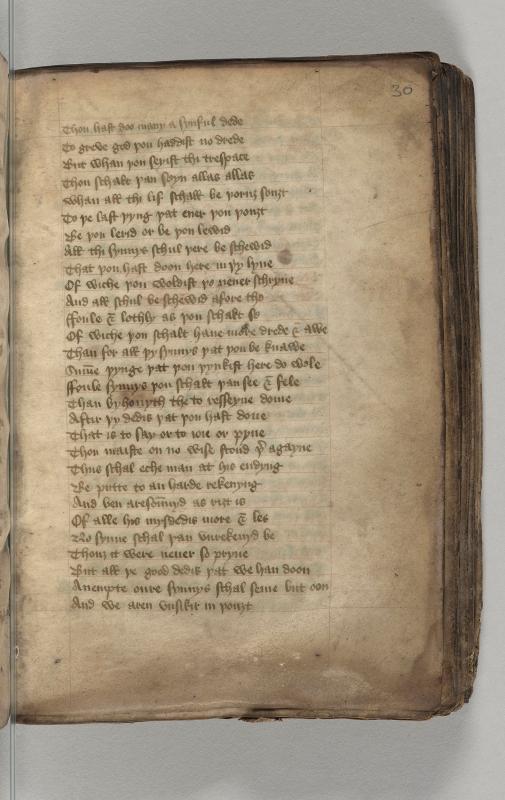 30
Thou hast doo many a synful dede
To greve god þou haddist no drede
But whan þou seyist thi trespace
Thou schalt þan seyn allas allas
Whan all thi lif schall be þoruȝ souȝt
To þe last þyng þat euer þou þouȝt
Be þou lerid or be þou lewid
All thi synnys schul þere be schewid
That þou hast doon here in þy lyue
Of wiche þou woldist þo neuer schryue
And all schul be schewid afore the
ffoule & lothly as þou schalt se
Of wiche þou schalt haue more drede & awe
Than for all þy synnys þat þou be knawe
Summe þynge þat þou þynkist here do wele
ffoule synnys þou schalt þan see & fele
Than byhouyth the to resseyue dome
Aftir þy dedis þat þou hast done
That is to say or to ioie or pyne
Thou maiste on no wise stond þer agayne
Thus schal eche man at his endyng
Be putte to an harde rekenyng
And ben aresonnyd as riȝt is
Of alle his mysdedis more & les
No synne schal þan vnrekenyd be
Thouȝ it were neuer so pryue
But all þe good dedis þat we han doon
Anempte oure synnys schal seme but oon
And we aren vnsikir in þouȝt